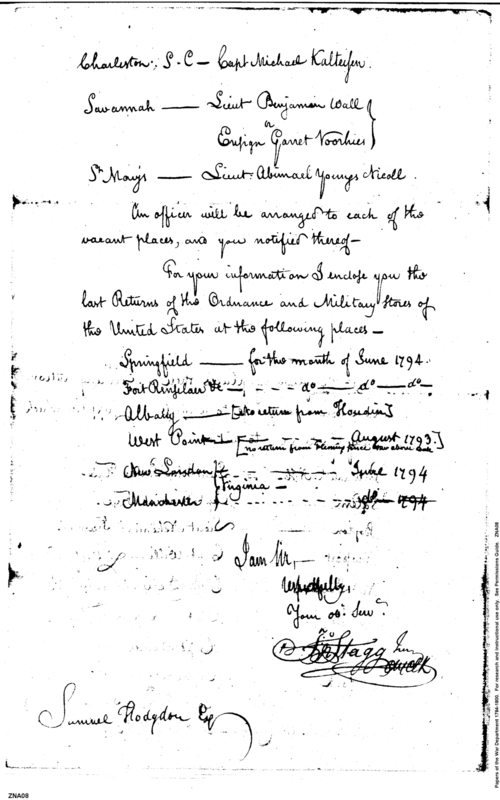 Charleston, S-C — Capt Michael Kalteisen.
Savannah — Lieut Benjamin Wall
or
Ensign Garret Voorhies
St Mary's — Lieut. Abimael Youngs Nicoll.
An officer will be arranged to each of the
vacant places, and you notified thereof—
For your information I enclose you the
last Returns of the Ordnance and Military Stores of
the United States at the following places —
Springfield — for the month of June 1794.
Fort Rensselaer &c — do — do — do —
Albany — [No return from Housdin]
West Point — August 1793]
[no return from Fleming since the above date
New London — June 1794
Virginia —
Manchester — do 1794
I am Sir, —
respectfully,
Your ob: Serv.
Jno Stagg Jun
Samuel Hodgdon Esq
ZNA08
Papers of the War Department 1784-1800. For research and instructional use only. See Permissions Guide. ZNA08